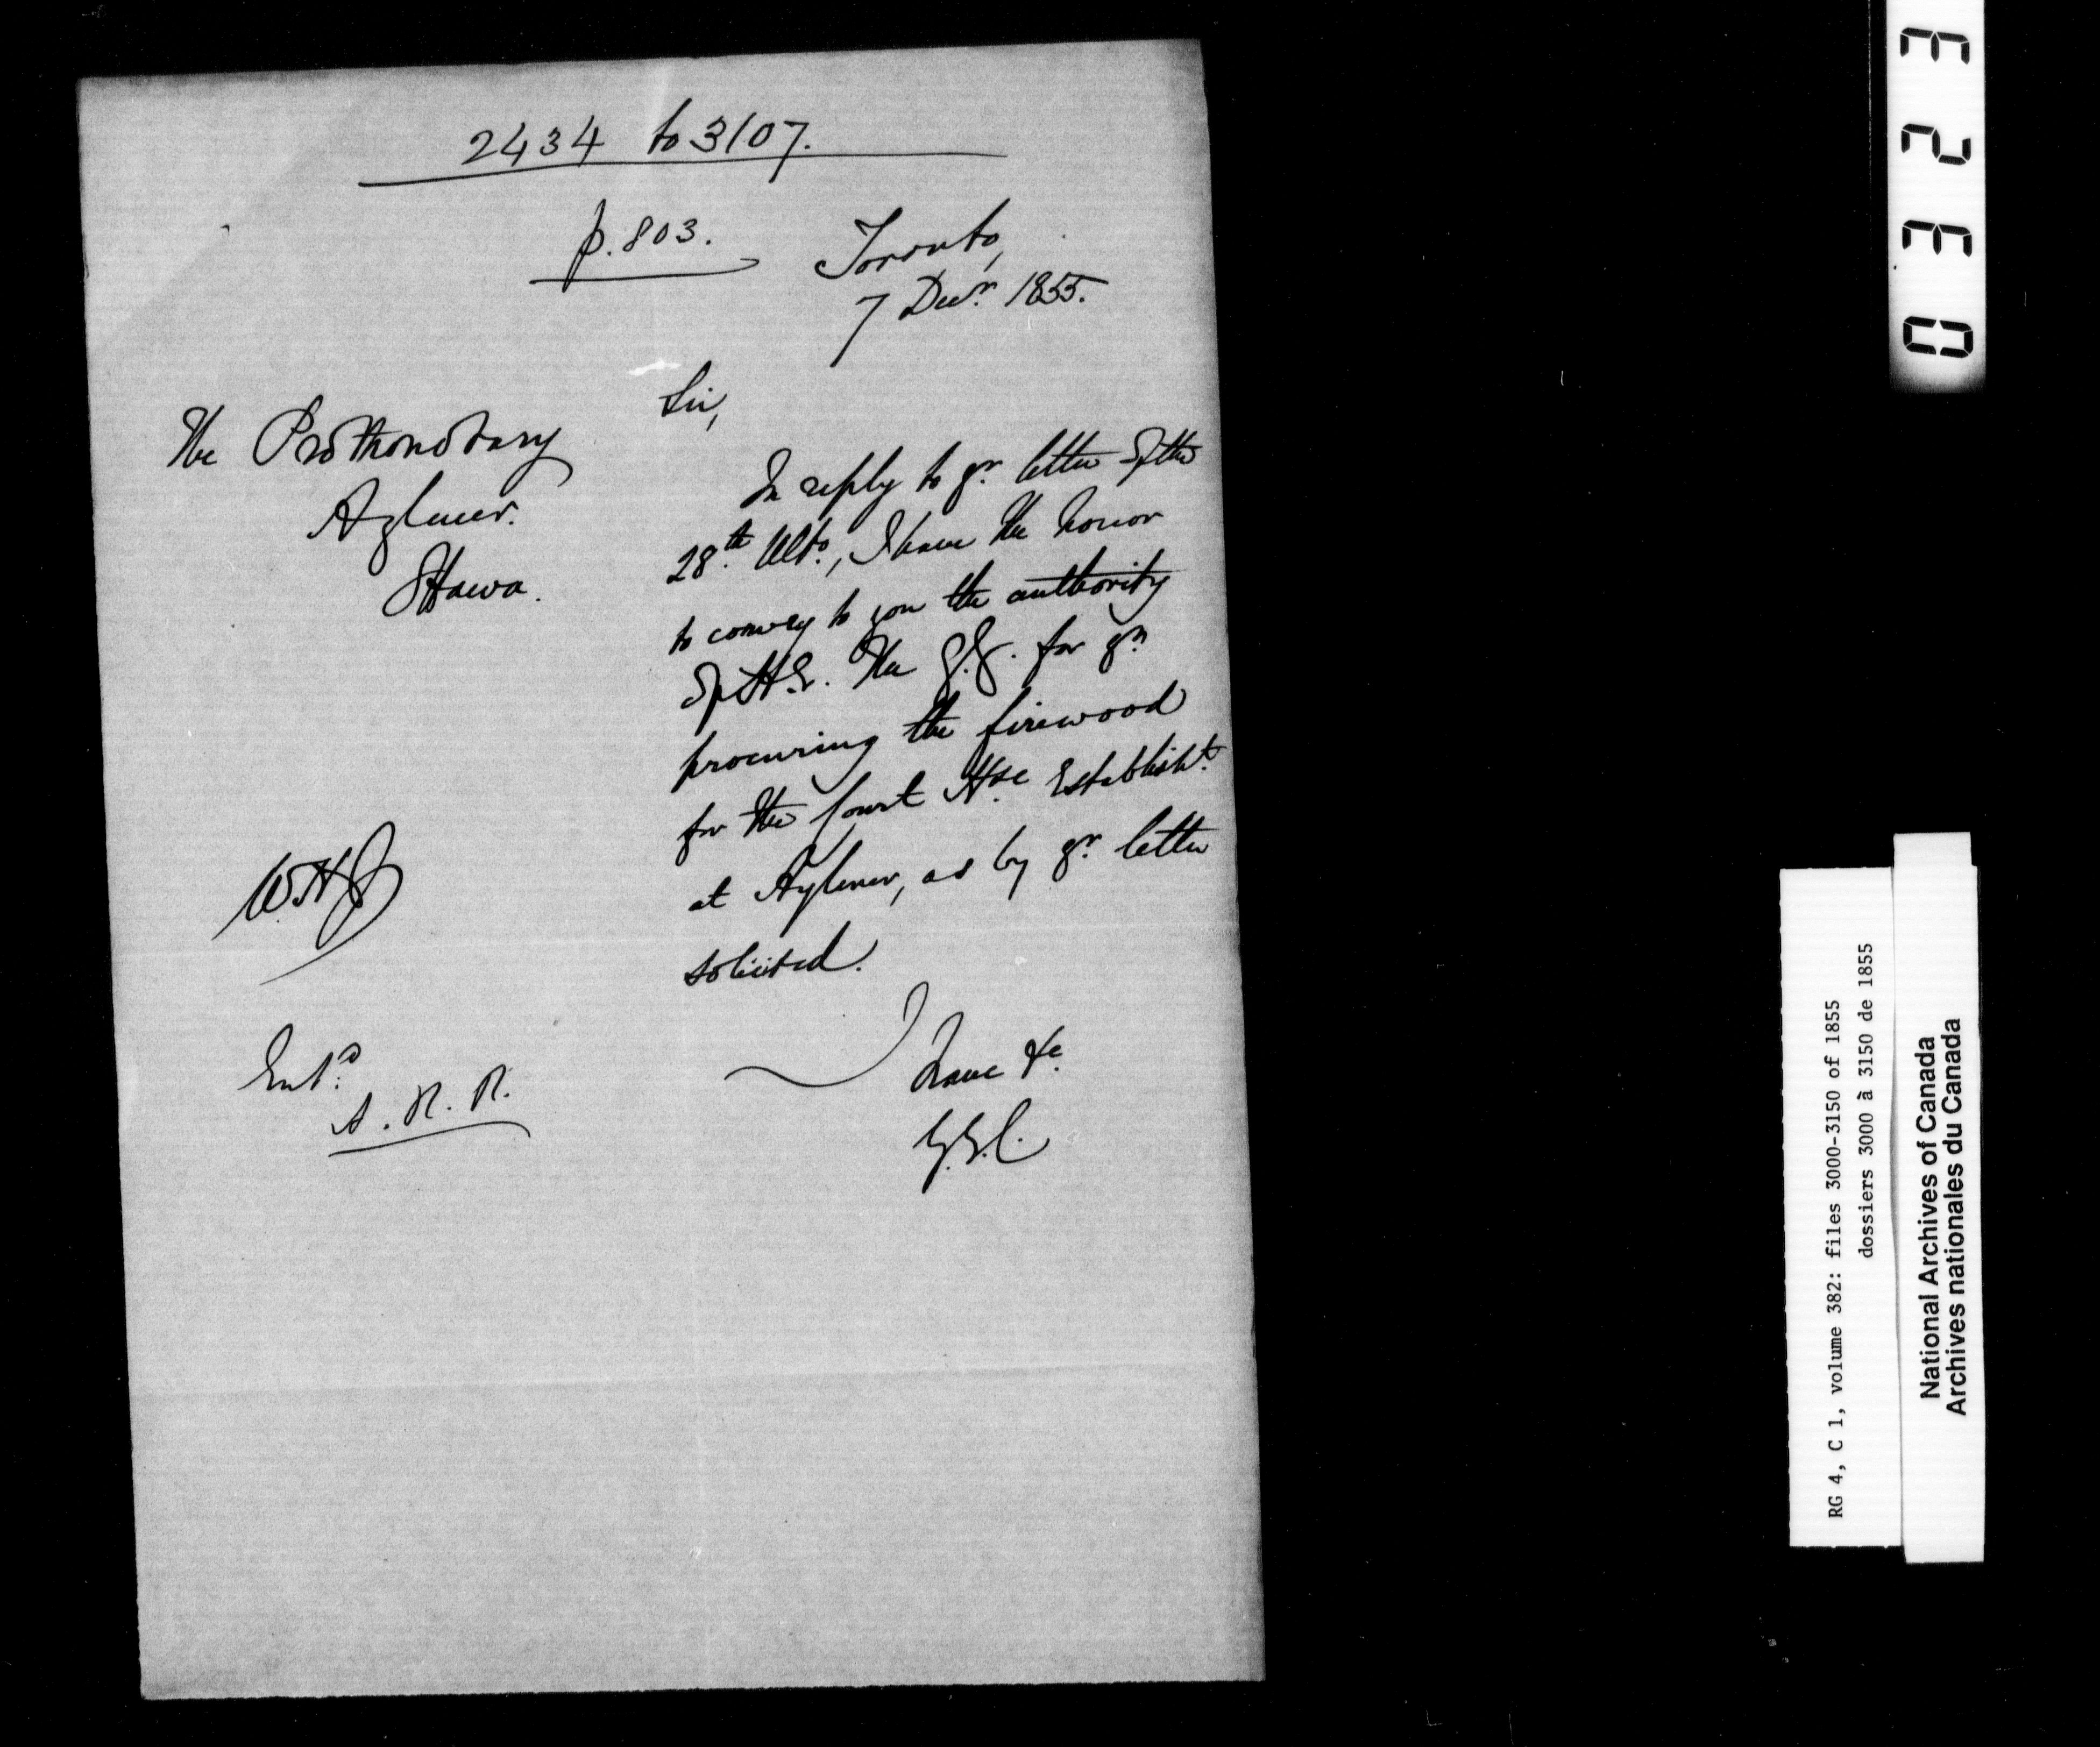 2434 to 3107.
p. 803.
Toronto,
7 Decr. 1855.
The Prothonotary
Aylmer.
Ottawa.
Sir,
In reply to yr. letter of the
28th. Ulto., I have the honor
to convey to you the authority
of H.E. the G.G. for yr.
procuring the firewood
for the Court Hse. Establisht.
at Aylmer, as by yr. letter
solicited.
I have &c.
G.E.C.
W.H.J
Entd.
A. R. R.
0323
RG 4, C 1, volume 382: files 3000-3150 of 1855
dossiers 3000 à 3150 de 1855
National Archives of Canada
Archives nationales du Canada